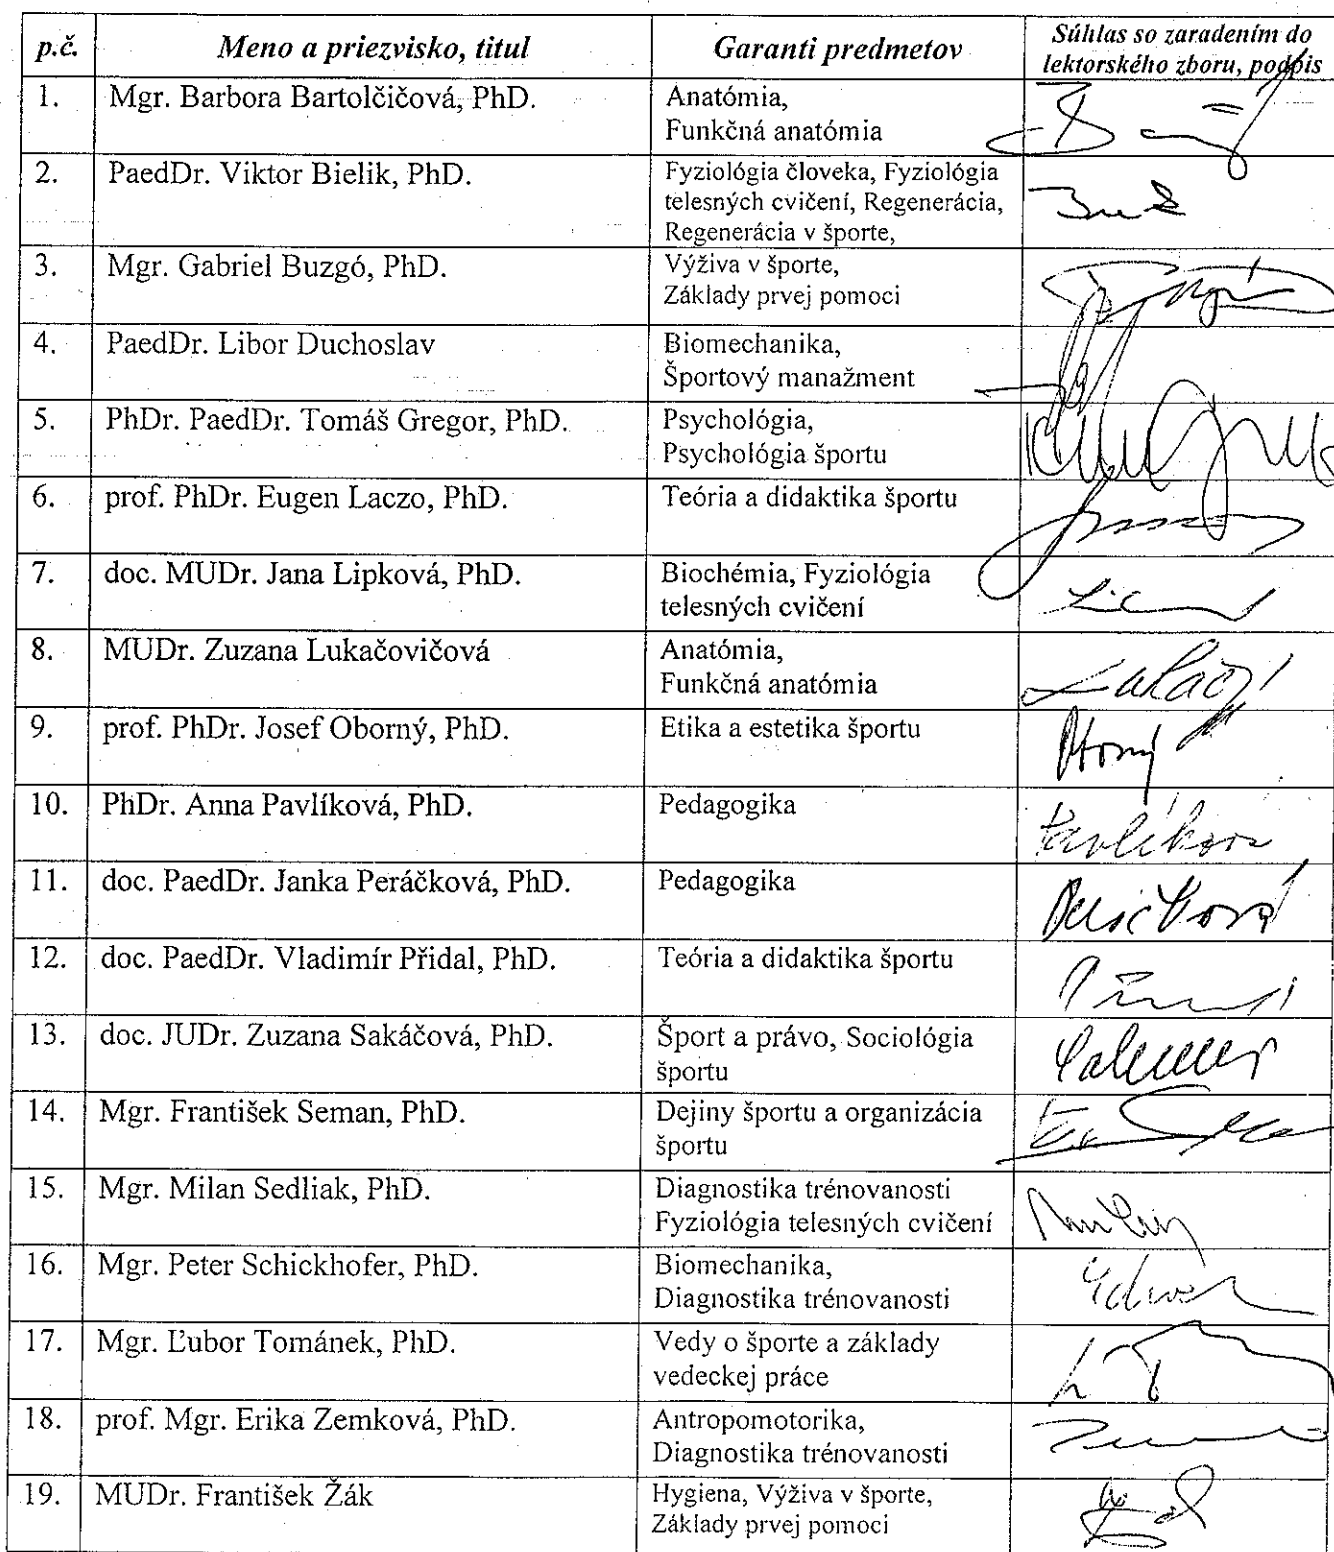 p.č. Meno a priezvisko, titul Garanti predmetov Súhlas so zaradením do
lektorského zboru, podpis
1. Mgr. Barbora Bartolčičová, PhD. Anatómia,
Funkčná anatómia
2. PaedDr. Viktor Bielik, PhD. Fyziológia človeka, Fyziológia
telesných cvičení, Regenerácia,
Regenerácia v športe,
3. Mgr. Gabriel Buzgó, PhD. Výživa v športe,
Základy prvej pomoci
4. PaedDr. Libor Duchoslav Biomechanika,
Športový manažment
5. PhDr. PaedDr. Tomáš Gregor, PhD. Psychológia,
Psychológia športu
6. prof. PhDr. Eugen Laczo, PhD. Teória a didaktika športu
7. doc. MUDr. Jana Lipková, PhD. Biochémia, Fyziológia
telesných cvičení
8. MUDr. Zuzana Lukačovičová Anatómia,
Funkčná anatómia
9. prof. PhDr. Josef Oborný, PhD. Etika a estetika športu
10. PhDr. Anna Pavlíková, PhD. Pedagogika
Pavlíková
11. doc. PaedDr. Janka Peráčková, PhD. Pedagogika
12. doc. PaedDr. Vladimír Přidal, PhD. Teória a didaktika športu
13. doc. JUDr. Zuzana Sakáčová, PhD. Šport a právo, Sociológia
športu
14. Mgr. František Seman, PhD. Dejiny športu a organizácia
športu
15. Mgr. Milan Sedliak, PhD. Diagnostika trénovanosti
Fyziológia telesných cvičení
16. Mgr. Peter Schickhofer, PhD. Biomechanika,
Diagnostika trénovanosti
17. Mgr. Ľubor Tománek, PhD. Vedy o športe a základy
vedeckej práce
18. prof. Mgr. Erika Zemková, PhD. Antropomotorika,
Diagnostika trénovanosti
19. MUDr. František Žák Hygiena, Výživa v športe,
Základy prvej pomoci